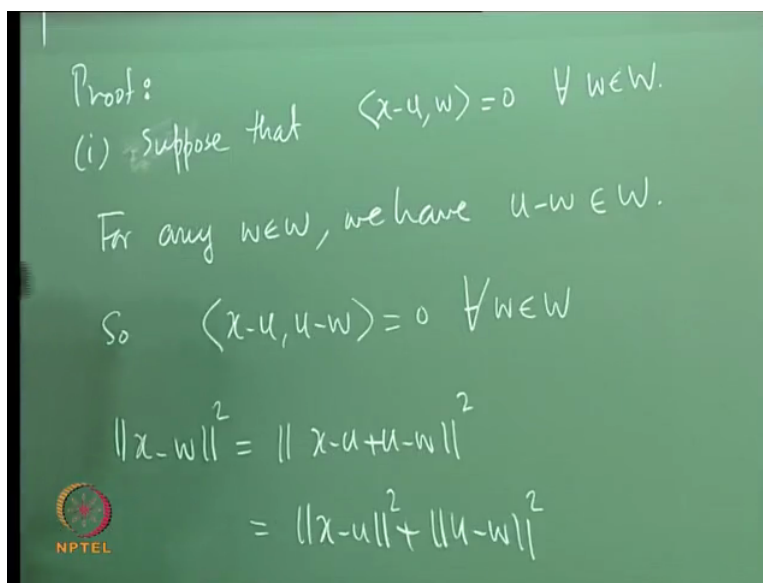 Proof:
(i) Suppose that ⟨x-u, w⟩ = 0 ∀ w∈W.
For any w∈W, we have u-w ∈ W.
So ⟨x-u, u-w⟩ = 0 ∀ w∈W
||x-w||² = || x-u+u-w||²
= ||x-u||² + ||u-w||²
NPTEL